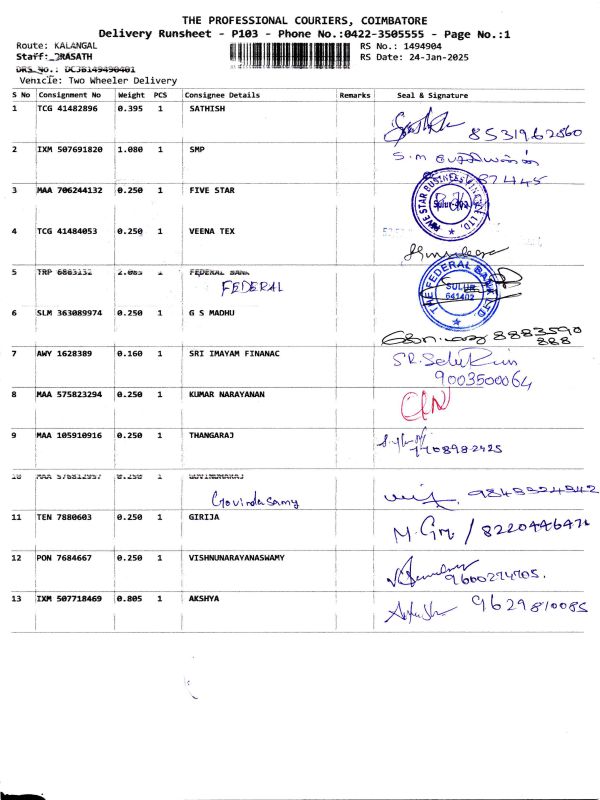 THE PROFESSIONAL COURIERS, COIMBATORE
Delivery Runsheet - P103 - Phone No.:0422-3505555 - Page No.:1
Route: KALANGAL RS No.: 1494904
Staff: PRASATH RS Date: 24-Jan-2025
DRS No.: DCJB149490401
Vehicle: Two Wheeler Delivery
S No Consignment No Weight PCS Consignee Details Remarks Seal & Signature
1 TCG 41482896 0.395 1 SATHISH 8531962860
2 IXM 507691820 1.080 1 SMP S.M
87445
3 MAA 706244132 0.250 1 FIVE STAR FIVE STAR BUSINESS FINANCE LTD.
4 TCG 41484053 0.250 1 VEENA TEX
5 TRP 6863132 2.085 1 FEDERAL BANK THE FEDERAL BANK LTD. SULUR 641402
FEDERAL
6 SLM 363089974 0.250 1 G S MADHU 8883590
888
7 AWY 1628389 0.160 1 SRI IMAYAM FINANAC
9003500064
8 MAA 575823294 0.250 1 KUMAR NARAYANAN
9 MAA 105910916 0.250 1 THANGARAJ
10 MAA 576812957 0.250 1 GOVINDARAJ
Govindasamy
11 TEN 7880603 0.250 1 GIRIJA
12 PON 7684667 0.250 1 VISHNUNARAYANASWAMY
13 IXM 507718469 0.805 1 AKSHYA 9629810085